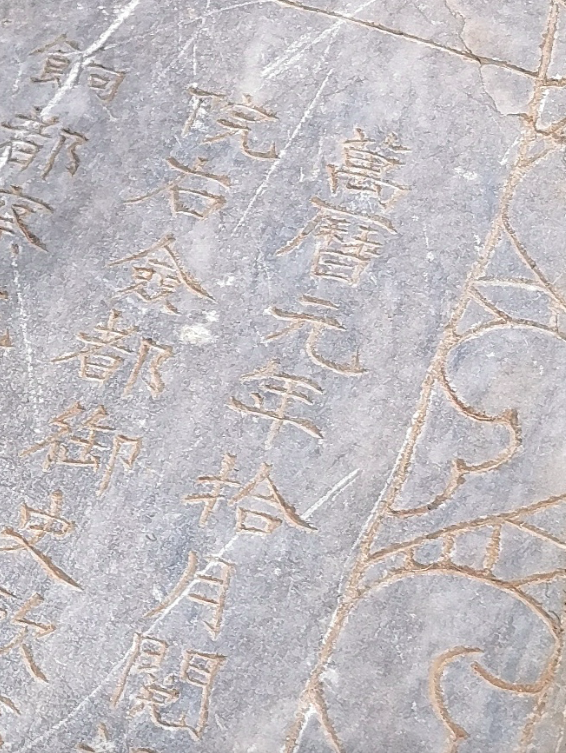 萬曆元年拾月閱
院右僉都御史欽
餉都察